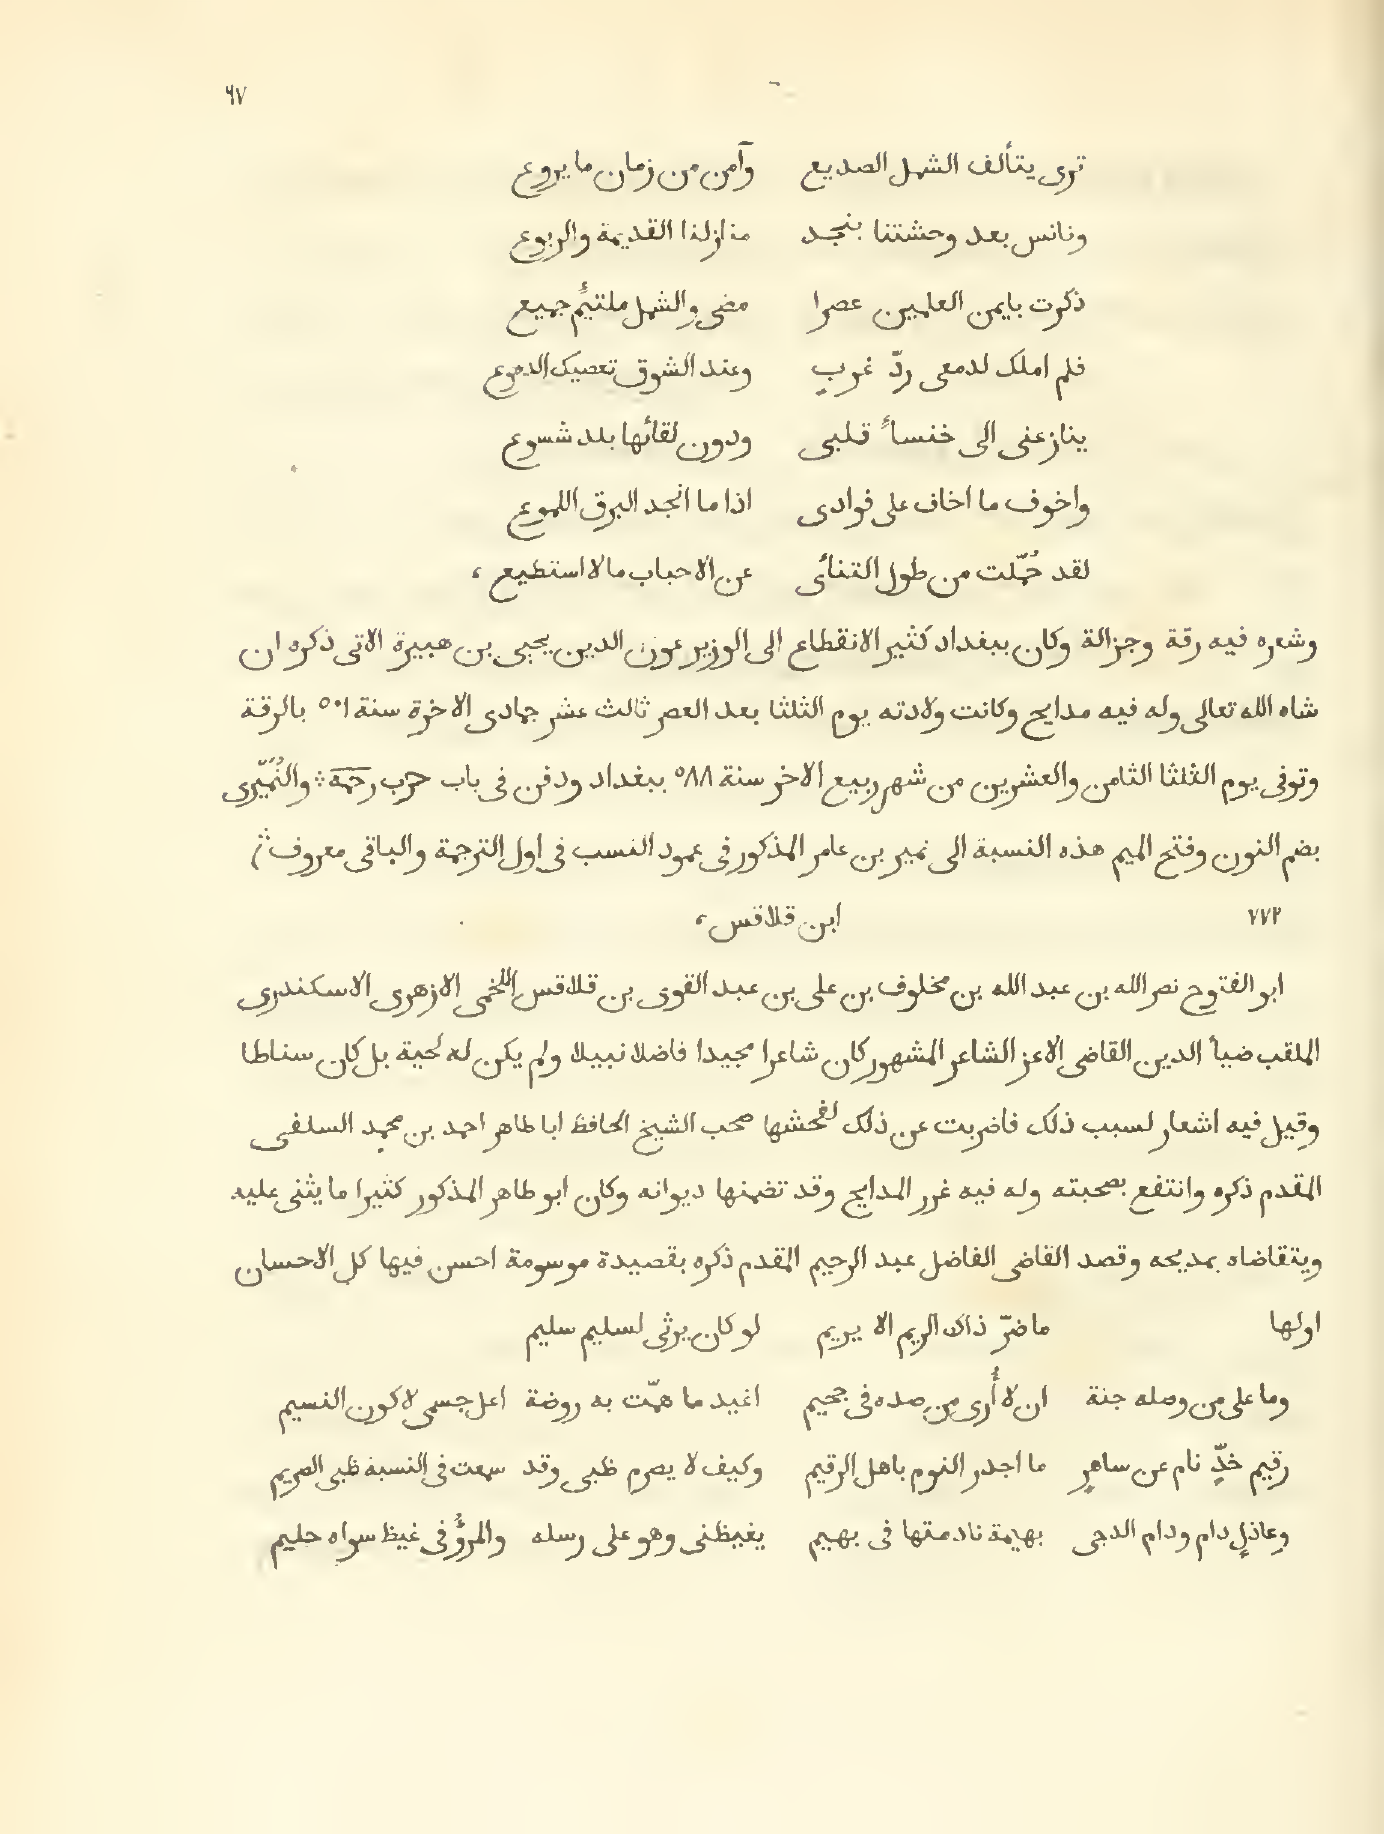 ٦٧
ترى يتألف الشمل الصديع وآمن من زمان ما يروع
ونانس بعد وحشتنا بنجد منازلنا القديمة والربوع
ذكرت بايمن العلمين عصرا مضى والشمل ملتئم جميع
فلم املك لدمعى ردّ غربٍ وعند الشوق تعصيك الدموع
ينازعنى الى خنساءٔ قلبى ودون لقائها بلد شسوع
واخوف ما اخاف على فوادى اذا ما انجد البرق اللموع
لقد حُمّلت من طول التنائى عن الاحباب ما لا استطيع ،
وشعره فيه رقة وجزالة وكان ببغداد كثير الانقطاع الى الوزير عون الدين يحيى بن هبيرة الاتى ذكره ان
شاه الله تعالى وله فيه مدايح وكانت ولادته يوم الثلثا بعد العصر ثالث عشر جمادى الاخرة سنة ٥٠١ بالرقة
وتوفى يوم الثلثا الثامن والعشرين من شهر ربيع الاخر سنة ٥٨٨ ببغداد ودفن فى باب حرب رحمة ؞ والنُمَيّرى
بضم النون وفتح الميم هذه النسبة الى نمير بن عامر المذكور فى عمود النسب فى اول الترجمة والباقى معروف
٧٧٢ ابن قلاقس ،
ابو الفتوح نصر الله بن عبد الله بن مخلوف بن على بن عبد القوى بن قلاقس اللخمى الازهرى الاسكندرى
الملقب ضيأ الدين القاضى الاعز الشاعر المشهور كان شاعرا مجيدا فاضلا نبيلا ولم يكن له لحية بل كان سناطا
وقيل فيه اشعار لسبب ذلك فاضربت عن ذلك لفحشها صحب الشيخ الحافظ ابا طاهر احمد بن محمد السلفى
المقدم ذكره وانتفع بصحبته وله فيه غرر المدايح وقد تضمنها ديوانه وكان ابو طاهر المذكور كثيرا ما يثنى عليه
ويتقاضاه بمديحه وقصد القاضى الفاضل عبد الرحيم المقدم ذكره بقصيدة موسومة احسن فيها كل الاحسان
اولها ما ضرّ ذاك الريم الا يريم لو كان يرثى لسليم سليم
وما على من وصله جنة ان لا أُرى من صده فى جحيم اغيد ما همّت به روضة اعل جسمى لاكون النسيم
رقيم خدٍّ نام عن ساهرٍ ما اجدر النوم باهل الرقيم وكيف لا يصرم ظبى وقد سمعت فى النسبة ظبى الصريم
وعاذلٍ دام ودام الدجى بهيمة نادمتها فى بهيم يغيظنى وهو على رسله والمرؤُ فى غيظ سواه حليم